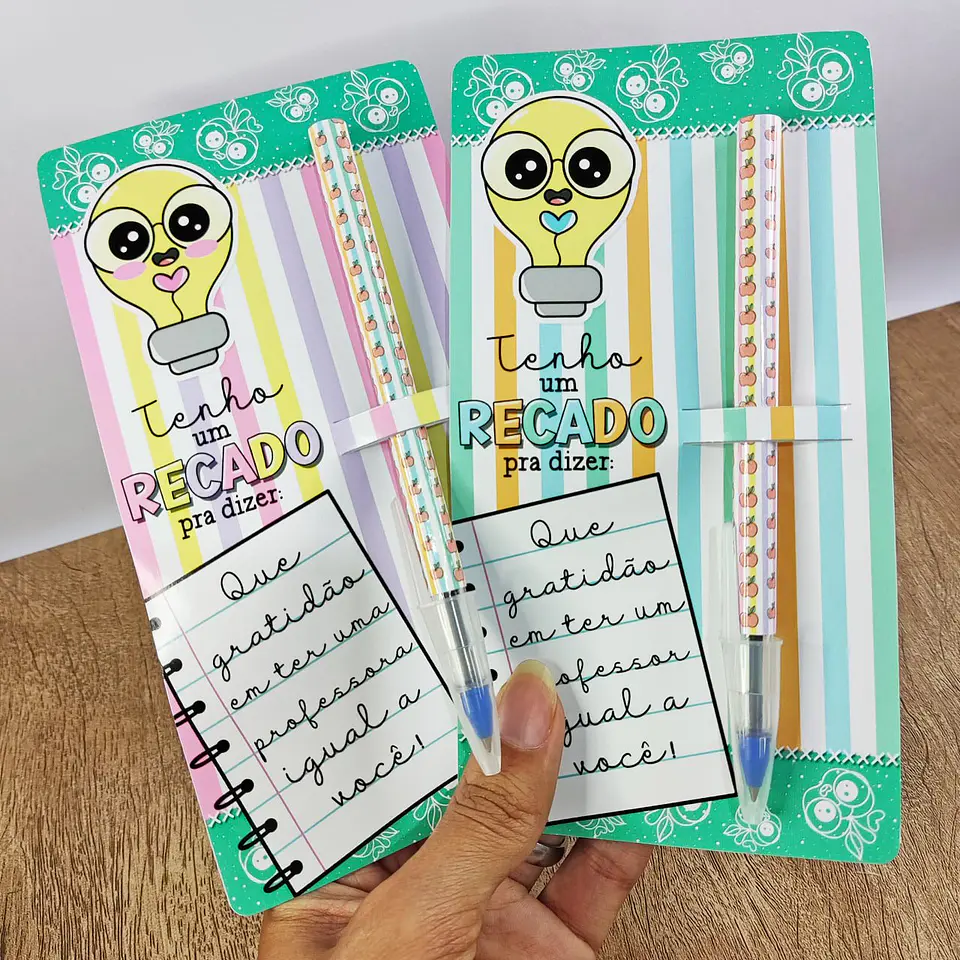 Tenho
um
RECADO
pra dizer:
Que
gratidão
em ter uma
professora
igual a
você!
Tenho
um
RECADO
pra dizer:
Que
gratidão
em ter um
ofessor
gual a
você!